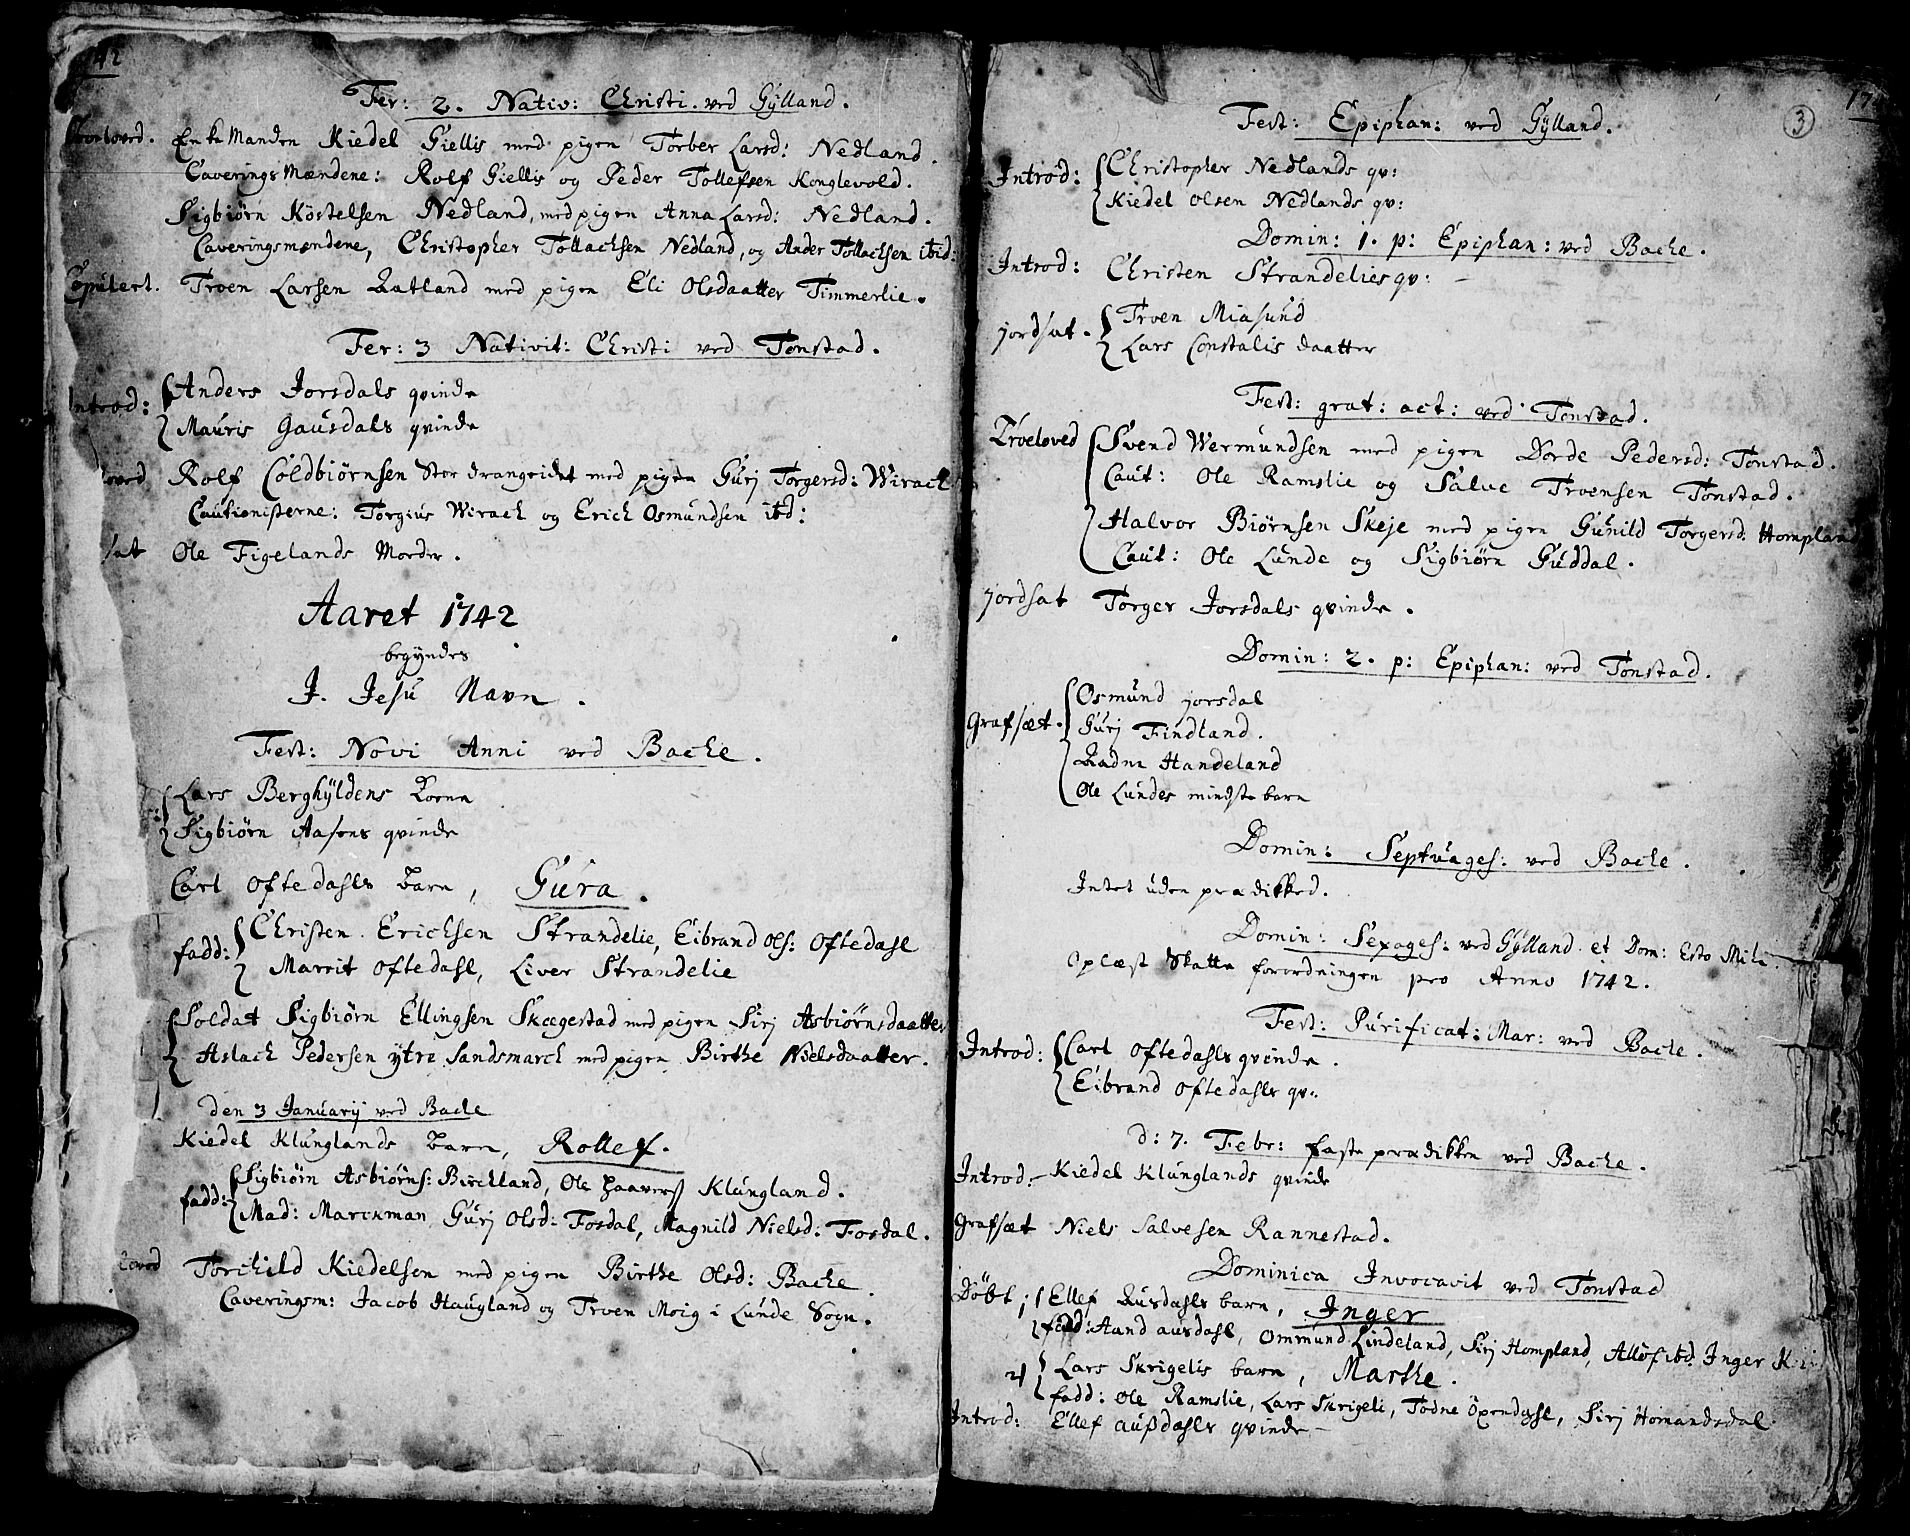 42
Fer: 2. Nativ: Christi. ved Gylland.
Troeloved. Enke Manden Kiedel Giellis med pigen Torber Larsd: Nedland.
Caverings Mændene: Rolf Giellis og Peder Tollefsen Konglevold.
Sigbiørn Köstelsen Nedland, med pigen Anna Larsd: Nedland.
Caveringsmændene, Christopher Tollachsen Nedland, og Ander Tollachsen ibid:
Copulert. Troen Larsen Ratland med pigen Eli Olsdaatter Timmerlie.
Fer: 3 Nativit: Christi ved Tonstad.
Introd: Anders Jorsdals qvinde
Mauris Gausdals qvinde
oved Rolf Coldbiørnsen Stor drangeidet med pigen Gurj Torgersd: Wirach
Cautionisterne: Torgius Wirach og Erich Osmundsen ibd:
sat Ole Figelands Moder.
Aaret 1742
begyndes
J. Jesu Navn.
Fest: Novi Anni ved Bache.
Lars Berghyldens Kone
Sigbiørn Aasens qvinde
Carl Oftedahls barn, Gura.
fadd: Christen Erichsen Strandelie, Eibrand Ols: Oftedahl
Marrit Oftedahl, Liver Strandelie
Soldat Sigbiørn Ellingsen Skægestad med pigen Sirj Asbiørnsdaatter
Aslach Pedersen ytre Sandsmarch med pigen Birthe Nielsdaatter.
den 3 Januarij ved Bache
Kiedel Klunglands barn, Rollef.
fadd: Sigbiørn Asbiørns: Birchland, Ole Haavers: Klungland.
Mad: Marckman, Gurj Olsd: Fosdal, Magnild Nielsd: Fosdal.
loved Torchild Kiedelsen med pigen Birthe Olsd: Bache.
Caveringsm: Jacob Haugland og Troen Moig i Lunde Sogn.
3
17
Fest: Epiphan: ved Gylland.
Introd: Christopher Nedlands qv:
Kiedel Olsen Nedlands qv:
Domin: 1. p: Epiphan: ved Bache.
Introd: Christen Strandelies qv:
jordsat. Troen Miasund
Lars Constalis daatter
Fest: grat: act: ved Tonstad.
Troeloved Svend Wermundsen med pigen Dorde Pedersd: Tonstad.
Caut: Ole Ramslie og Salve Troensen Tonstad.
Halvor Biørnsen Skeje med pigen Gunild Torgersd: Hompland
Caut: Ole Lunde og Sigbiørn Guddal.
jordsat Torger Jorsdals qvinde.
Domin: 2. p: Epiphan: ved Tonstad.
Grafsæt. Osmund jorsdal
Gurj Findland.
Radne Handeland
Ole Lundes mindste barn
Domin: Septuages: ved Bache.
Intet uden prædikked.
Domin: Sexages: ved Gylland. et Dom: Esto Mihi.
Oplæst Skatte forordningen pro Anno 1742.
Fest: Purificat: Mar: ved Bache.
Introd: Carl Oftedahls qvinde.
Eibrand Oftedahls qv:
d: 7. Febr: faste prædikken ved Bache.
Introd. Kiedel Klunglands qvinde
Grafsæt Niels Salvesen Rannestad.
Dominica Invocavit ved Tonstad
Döbt 1 Ellef Ausdahls barn, Inger
fadd: Aand ausdahl, Ommund Lindeland, Sirj Hompland, Allof ibd: Inger
2 Lars Skrigelis barn, Marthe.
fadd: Ole Ramslie, Lars Skrigeli, Todne Öxendahl, Sirj Homandsdal
Introd: Ellef Ausdahls qvinde